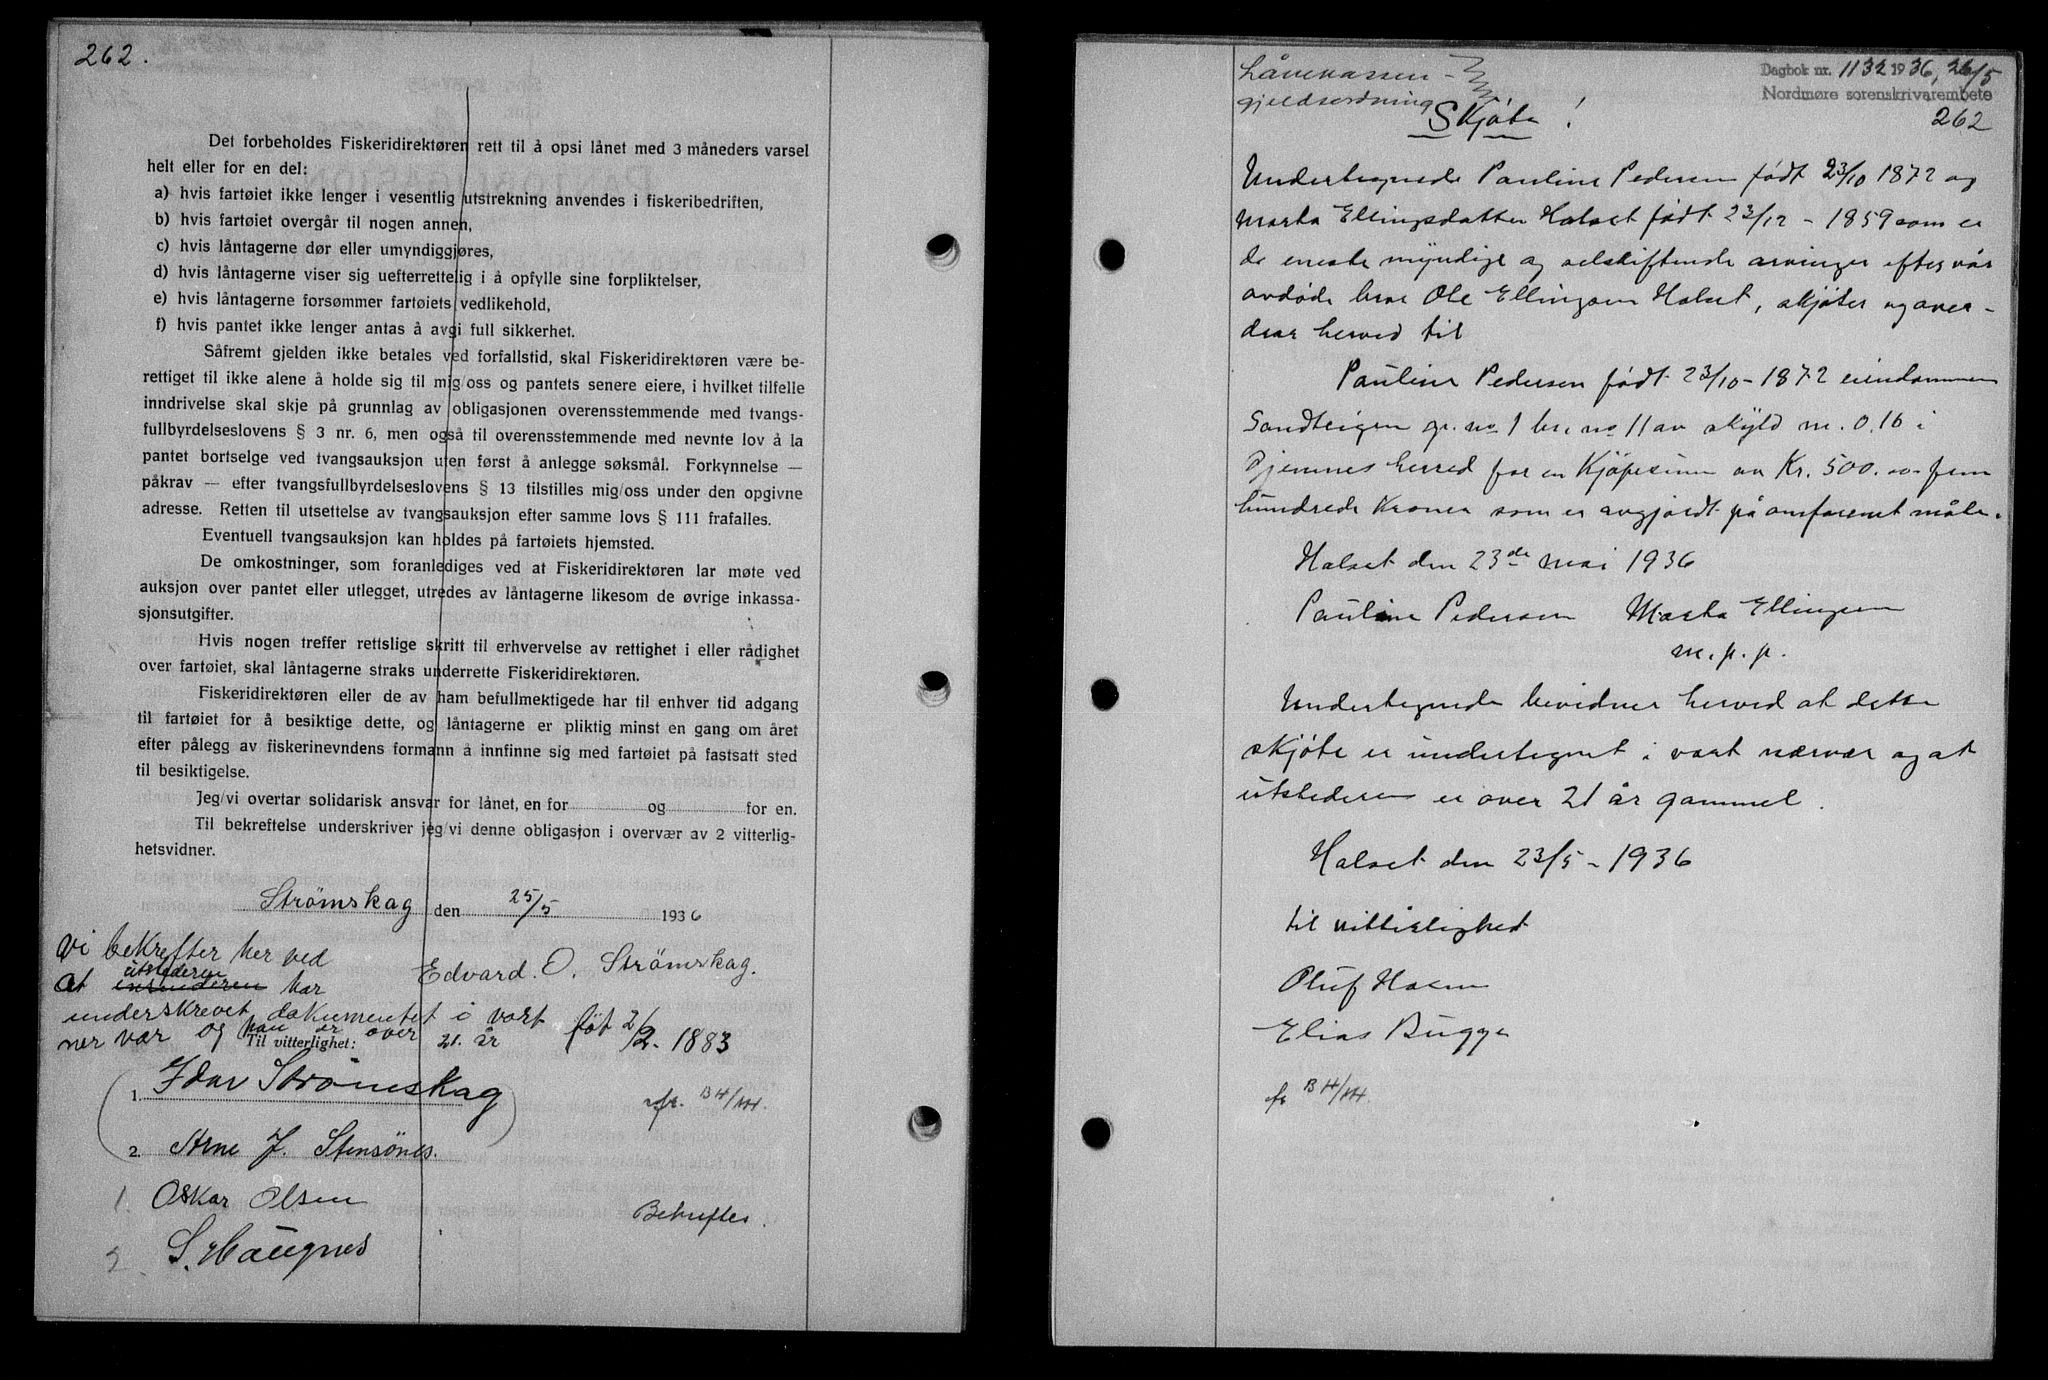 262.
Det forbeholdes Fiskeridirektøren rett til å opsi lånet med 3 måneders varsel
helt eller for en del:
a) hvis fartøiet ikke lenger i vesentlig utstrekning anvendes i fiskeribedriften,
b) hvis fartøiet overgår til nogen annen,
c) hvis låntagerne dør eller umyndiggjøres,
d) hvis låntagerne viser sig uefterrettelig i å opfylle sine forpliktelser,
e) hvis låntagerne forsømmer fartøiets vedlikehold,
f) hvis pantet ikke lenger antas å avgi full sikkerhet.
Såfremt gjelden ikke betales ved forfallstid, skal Fiskeridirektøren være be-
rettiget til ikke alene å holde sig til mig/oss og pantets senere eiere, i hvilket tilfelle
inndrivelse skal skje på grunnlag av obligasjonen overensstemmende med tvangs-
fullbyrdelseslovens § 3 nr. 6, men også til overensstemmende med nevnte lov å la
pantet bortselge ved tvangsauksjon uten først å anlegge søksmål. Forkynnelse —
påkrav — efter tvangsfullbyrdelseslovens § 13 tilstilles mig/oss under den opgivne
adresse. Retten til utsettelse av tvangsauksjon efter samme lovs § 111 frafalles.
Eventuell tvangsauksjon kan holdes på fartøiets hjemsted.
De omkostninger, som foranlediges ved at Fiskeridirektøren lar møte ved
auksjon over pantet eller utlegget, utredes av låntagerne likesom de øvrige inkassa-
sjonsutgifter.
Hvis nogen treffer rettslige skritt til erhvervelse av rettighet i eller rådighet
over fartøiet, skal låntagerne straks underrette Fiskeridirektøren.
Fiskeridirektøren eller de av ham befullmektigede har til enhver tid adgang
til fartøiet for å besiktige dette, og låntagerne er pliktig minst en gang om året
efter pålegg av fiskerinevndens formann å innfinne sig med fartøiet på fastsatt sted
til besiktigelse.
Jeg/vi overtar solidarisk ansvar for lånet, en for og for en.
Til bekreftelse underskriver jeg/vi denne obligasjon i overvær av 2 vitterlig-
hetsvidner.
Strømskag den 25/5 1936
Vi bekrefter her ved
Edvard. O. Strømskag.
utstederen
at har
underskrevet dokumentet i vort
føt 2/2. 1883
nervær og han er over 21. år
Til vitterlighet:
1. Idar Strømskag
efr. B4/144.
2. Arne J. Stensönes.
1. Oskar Olsen
Bekreftes.
2. S. Haugnes
Lånekassen
gjeldsordning
Dagbok nr. 1132 1936, 26/5
Nordmøre sorenskrivarembete
262
Skjöte!
Undertegnede Pauline Pedersen födt 23/10 1872 og
Marta Ellingsdatter Halset födt 23/12 - 1859 som er
de eneste myndige og selskiftende arvinger efter vår
avdöde bror Ole Ellingsen Halset, skjöter og over-
drar herved til
Pauline Pedersen födt 23/10 - 1872 eiendommen
Sandteigen gr. no 1 br. no 11 av skyld m. 0,16 i
Tjennes herred for en Kjöpesum av Kr. 500.00 fem
hundrede Kroner som er avgjordt på omforenet måte.
Halset den 23de mai 1936
Pauline Pedersen Marta Ellingsen
m. p. p.
Undertegnede bevidner herved at dette
skjöte er undertegnet i vort nærvær og at
utstederen er over 21 år gammel.
Halset den 23/5 - 1936
til vitterlighet
Oluf Holem
Elias Bugge
efr B4/144.